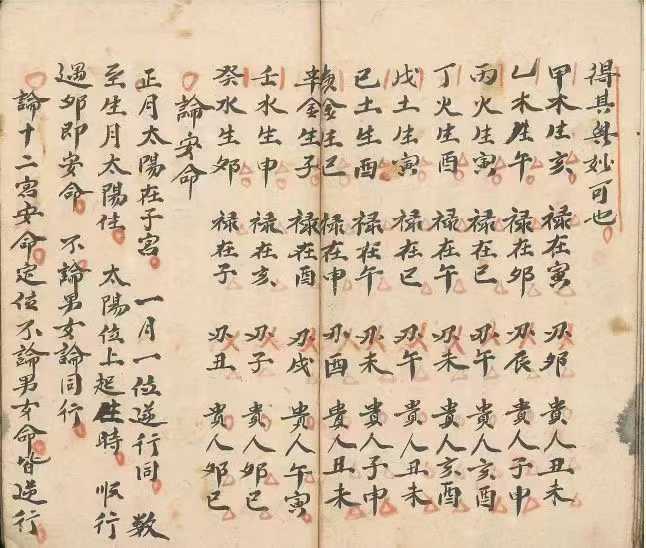 得其奥妙可也
甲木生亥 禄在寅 刃卯 貴人丑未
乙木生午 禄在卯 刃辰 貴人子申
丙火生寅 禄在巳 刃午 貴人亥酉
丁火生酉 禄在午 刃未 貴人亥酉
戊土生寅 禄在巳 刃午 貴人丑未
己土生酉 禄在午 刃未 貴人子申
庚金生巳 禄在申 刃酉 貴人丑未
辛金生子 禄在酉 刃戌 貴人午寅
壬水生申 禄在亥 刃子 貴人卯巳
癸水生卯 禄在子 刃丑 貴人卯巳
論安命
正月太陽在子宮 一月一位逆行同數
至生月太陽住 太陽位上起生時 順行
遇卯即安命 不論男女論同行
論十二宮安命定位不論男女命皆逆行